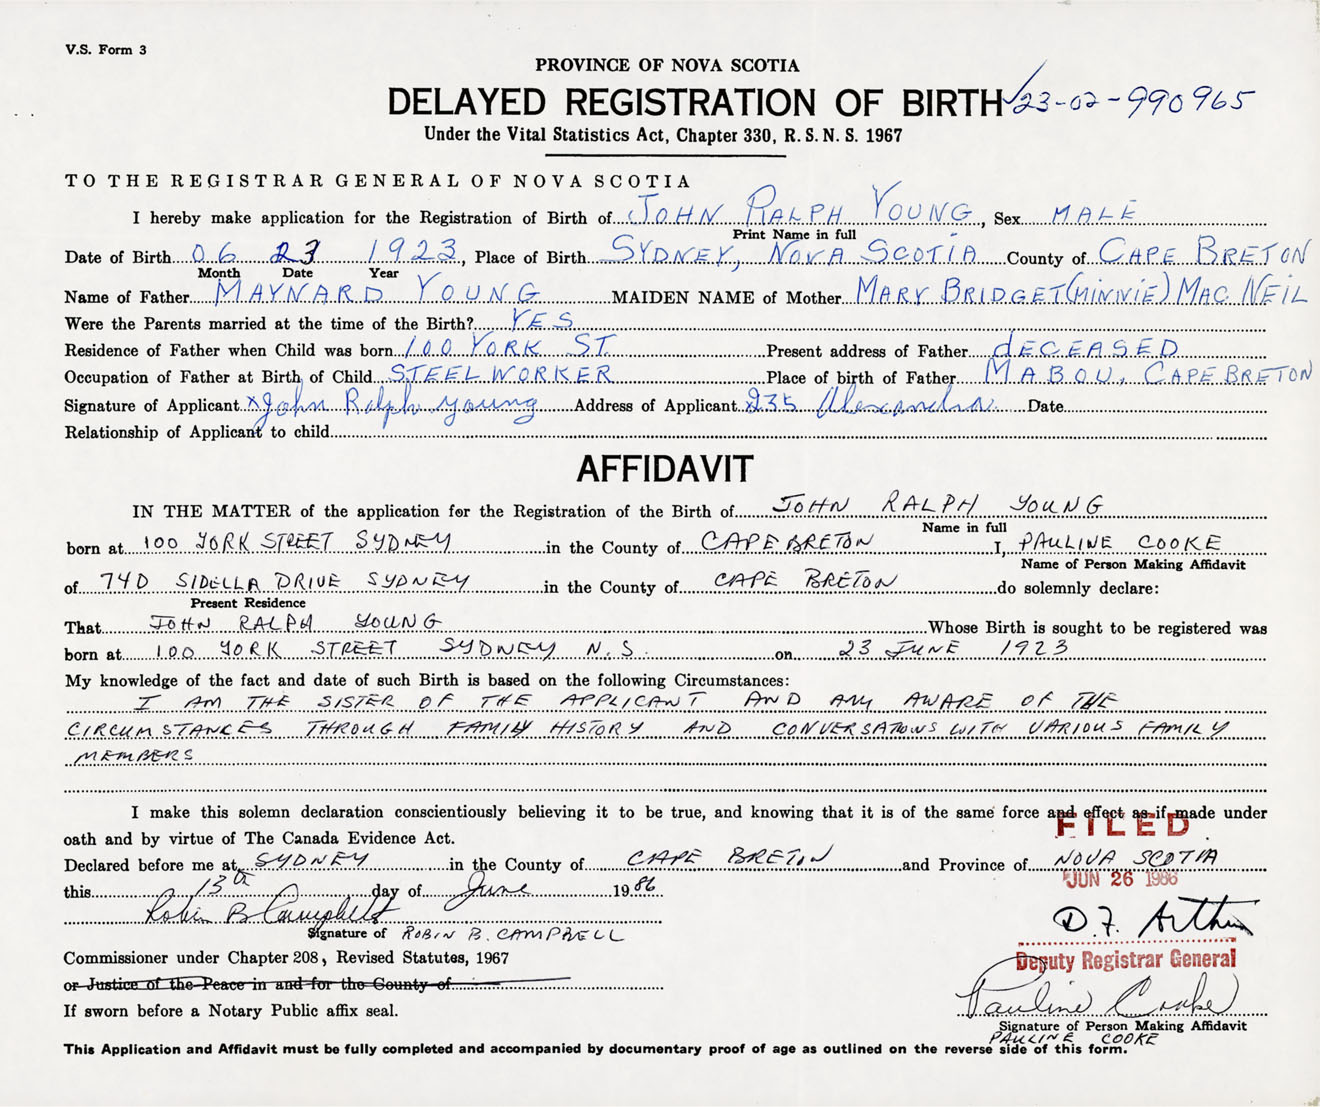 V.S. Form 3
PROVINCE OF NOVA SCOTIA
DELAYED REGISTRATION OF BIRTH ✓23-02-990965
Under the Vital Statistics Act, Chapter 330, R.S.N.S. 1967
TO THE REGISTRAR GENERAL OF NOVA SCOTIA
I hereby make application for the Registration of Birth of JOHN RALPH YOUNG, Sex MALE
Print Name in full
Date of Birth 06 23 1923, Place of Birth SYDNEY, NOVA SCOTIA County of CAPE BRETON
Month Date Year
Name of Father MAYNARD YOUNG MAIDEN NAME of Mother MARY BRIDGET (MINNIE) MAC NEIL
Were the Parents married at the time of the Birth? YES
Residence of Father when Child was born 100 YORK ST. Present address of Father dECEASED
Occupation of Father at Birth of Child STEELWORKER Place of birth of Father MABOU, CAPE BRETON
Signature of Applicant x John Ralph young Address of Applicant 235 Alexandra Date
Relationship of Applicant to child
AFFIDAVIT
IN THE MATTER of the application for the Registration of the Birth of JOHN RALPH YOUNG
Name in full
born at 100 YORK STREET SYDNEY in the County of CAPE BRETON I, PAULINE COOKE
Name of Person Making Affidavit
of 74D SIDELLA DRIVE SYDNEY in the County of CAPE BRETON do solemnly declare:
Present Residence
That JOHN RALPH YOUNG Whose Birth is sought to be registered was
born at 100 YORK STREET SYDNEY N.S. on 23 JUNE 1923
My knowledge of the fact and date of such Birth is based on the following Circumstances:
I AM THE SISTER OF THE APPLICANT AND AM AWARE OF THE
CIRCUMSTANCES THROUGH FAMILY HISTORY AND CONVERSATIONS WITH VARIOUS FAMILY
MEMBERS
I make this solemn declaration conscientiously believing it to be true, and knowing that it is of the same force and effect as if made under
FILED
oath and by virtue of The Canada Evidence Act.
Declared before me at SYDNEY in the County of CAPE BRETON and Province of NOVA SCOTIA
JUN 26 1986
this 13th day of June 1986
Robin B Campbell
D.F. Arthur
Signature of ROBIN B. CAMPBELL
Commissioner under Chapter 208, Revised Statutes, 1967
Deputy Registrar General
or Justice of the Peace in and for the County of
Pauline Cooke
If sworn before a Notary Public affix seal.
Signature of Person Making Affidavit
PAULINE COOKE
This Application and Affidavit must be fully completed and accompanied by documentary proof of age as outlined on the reverse side of this form.